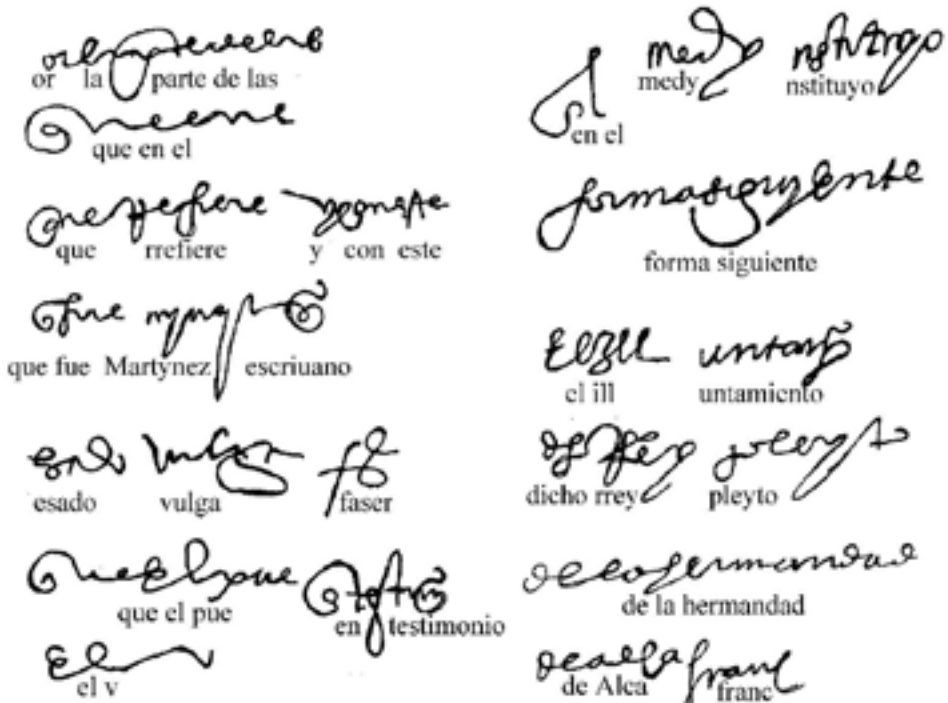 or la parte de las
que en el
que rrefiere y con este
que fue Martynez escriuano
esado vulga faser
que el pue en testimonio
el v
en el medy nstituyo
forma siguiente
el ill untamiento
dicho rrey pleyto
de la hermandad
de Alca franc